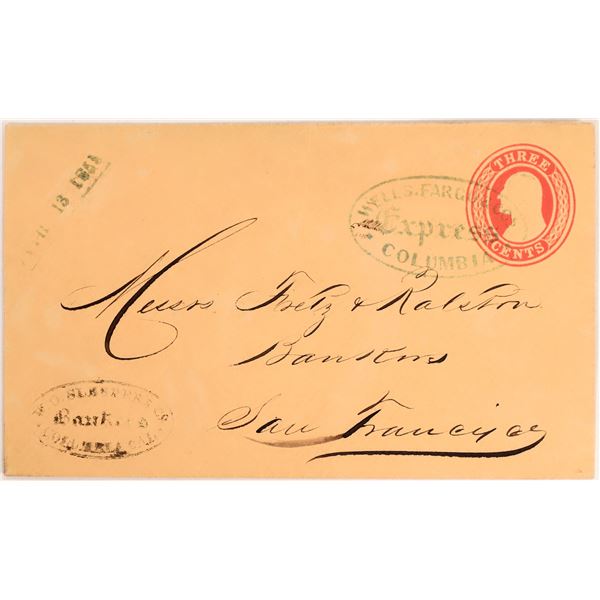 13 185
THREE
CENTS
WELLS. FARGO & Co.
Express
COLUMBIA
Messrs Fretz & Ralston
Bankers
San Francisco
W. O. SLEEPER &
Bankers
COLUMBIA CAL.